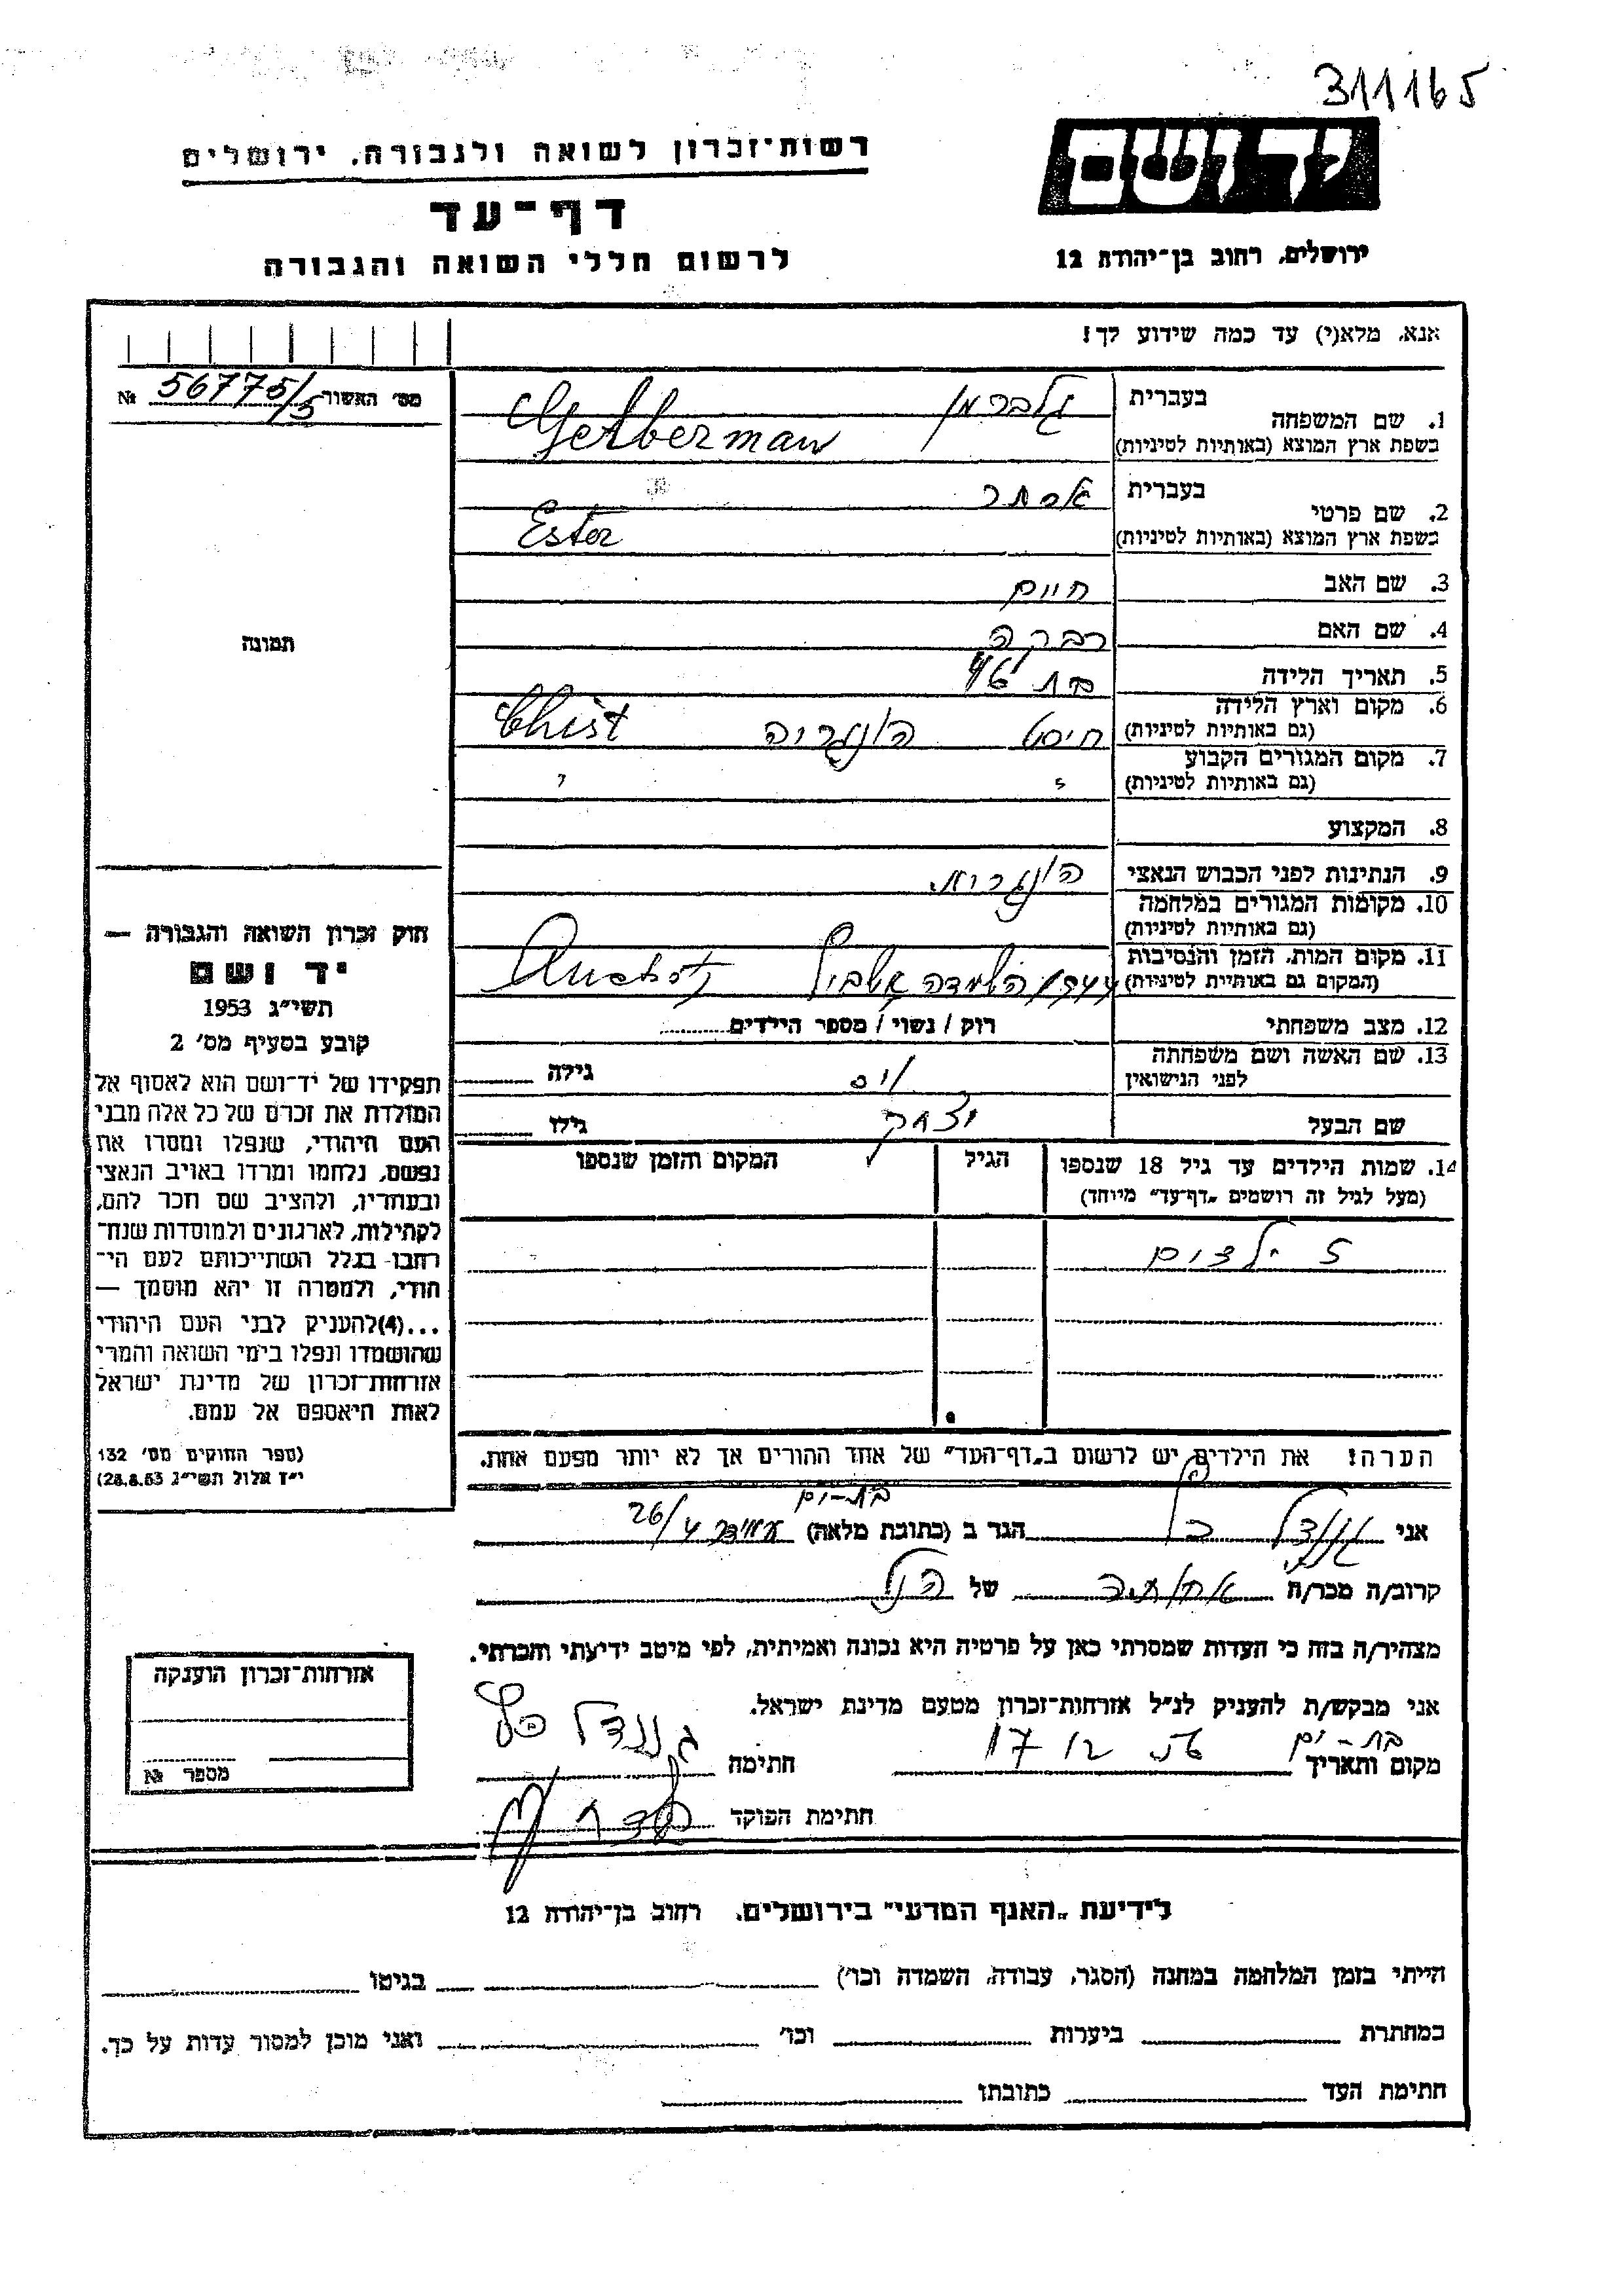 311165
יד ושם
ירושלים, רחוב בן־יהודה 12
רשות־זכרון לשואה ולגבורה, ירושלים
דף־עד
לרשום חללי השואה והגבורה
אנא, מלא(י) עד כמה שידוע לך!
מס׳ האשור 56775/5 №
1. שם המשפחה בעברית גלברמן
בשפת ארץ המוצא (באותיות לטיניות) Gelberman
2. שם פרטי בעברית אסתר
בשפת ארץ המוצא (באותיות לטיניות) Ester
3. שם האב חיים
4. שם האם רבקה
5. תאריך הלידה בת
6. מקום וארץ הלידה
(גם באותיות לטיניות) חוסט הונגריה Chist
7. מקום המגורים הקבוע
(גם באותיות לטיניות)
8. המקצוע
9. הנתינות לפני הכבוש הנאצי הונגרית
10. מקומות המגורים במלחמה
(גם באותיות לטיניות)
11. מקום המות, הזמן והנסיבות
(המקום גם באותיות לטיניות) 1944 השמדה
12. מצב משפחתי רווק / נשוי / מספר הילדים
13. שם האשה ושם משפחתה
לפני הנישואין גילה
שם הבעל יצחק גילו
14. שמות הילדים עד גיל 18 שנספו הגיל המקום והזמן שנספו
(מעל לגיל זה רושמים „דף־עד” מיוחד)
5 ילדים
הערה! את הילדים יש לרשום ב„דף־העד” של אחד ההורים אך לא יותר מפעם אחת.
תמונה
חוק זכרון השואה והגבורה —
יד ושם
תשי״ג 1953
קובע בסעיף מס׳ 2
תפקידו של יד־ושם הוא לאסוף אל
המולדת את זכרם של כל אלה מבני
העם היהודי, שנפלו ומסרו את
נפשם, נלחמו ומרדו באויב הנאצי
ובעוזריו, ולהציב שם וזכר להם,
לקהילות, לארגונים ולמוסדות שנח־
רבו בגלל השתייכותם לעם הי־
הודי, ולמטרה זו יהא מוסמך —
...(4)להעניק לבני העם היהודי
שהושמדו ונפלו בימי השואה והמרי
אזרחות־זכרון של מדינת ישראל
לאות היאספם אל עמם.
(ספר החוקים מס׳ 132
י״ז אלול תשי״ג 28.8.53)
בת-ים
אני הגר ב (כתובת מלאה) עמידר 26/4
קרוב/ה מכר/ה של הנ״ל
מצהיר/ה בזה כי העדות שמסרתי כאן על פרטיה היא נכונה ואמיתית, לפי מיטב ידיעתי והכרתי.
אני מבקש/ת להעניק לנ״ל אזרחות־זכרון מטעם מדינת ישראל.
מקום ותאריך בת-ים חתימה
חתימת הפוקד
אזרחות־זכרון הוענקה
מספר №
לידיעת „האגף המדעי” בירושלים, רחוב בן־יהודה 12
הייתי בזמן המלחמה במחנה (הסגר, עבודה, השמדה וכו׳) בגיטו
במחתרת ביערות וכו׳ ואני מוכן למסור עדות על כך.
חתימת העד כתובתו